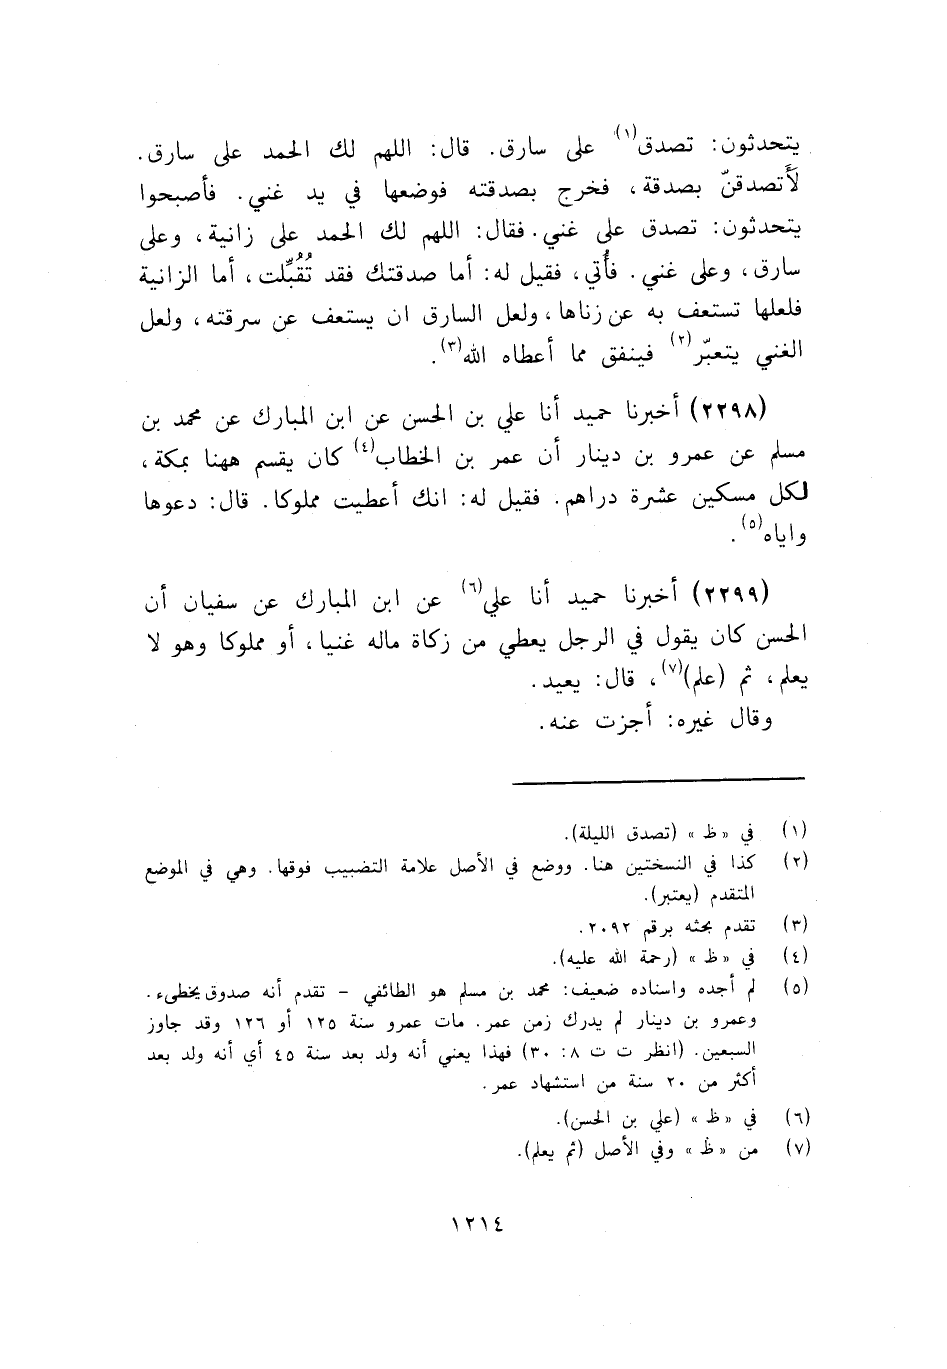 يتحدثون: تصدق(١) على سارق. قال: اللهم لك الحمد على سارق.
لَأَتصدقنّ بصدقة، فخرج بصدقته فوضعها في يد غني. فأصبحوا
يتحدثون: تصدق على غني. فقال: اللهم لك الحمد على زانية، وعلى
سارق، وعلى غني. فأُتي، فقيل له: أما صدقتك فقد تُقُبِّلت، أما الزانية
فلعلها تستعف به عن زناها، ولعل السارق ان يستعف عن سرقته، ولعل
الغني يتعبّر(٢) فينفق مما أعطاه الله(٣).
(٢٢٩٨) أخبرنا حميد أنا علي بن الحسن عن ابن المبارك عن محمد بن
مسلم عن عمرو بن دينار أن عمر بن الخطاب(٤) كان يقسم ههنا بمكة،
لكل مسكين عشرة دراهم. فقيل له: انك أعطيت مملوكا. قال: دعوها
واياه(٥).
(٢٢٩٩) أخبرنا حميد أنا علي(٦) عن ابن المبارك عن سفيان أن
الحسن كان يقول في الرجل يعطي من زكاة ماله غنيا، أو مملوكا وهو لا
يعلم، ثم (علم)(٧)، قال: يعيد.
وقال غيره: أجزت عنه.
(١) في «ظ» (تصدق الليلة).
(٢) كذا في النسختين هنا. ووضع في الأصل علامة التضبيب فوقها. وهي في الموضع
المتقدم (يعتبر).
(٣) تقدم بحثه برقم ٢٠٩٢.
(٤) في «ظ» (رحمة الله عليه).
(٥) لم أجده واسناده ضعيف: محمد بن مسلم هو الطائفي - تقدم أنه صدوق يخطىء.
وعمرو بن دينار لم يدرك زمن عمر. مات عمرو سنة ١٢٥ أو ١٢٦ وقد جاوز
السبعين. (انظر ت ت ٨: ٣٠) فهذا يعني أنه ولد بعد سنة ٤٥ أي أنه ولد بعد
أكثر من ٢٠ سنة من استشهاد عمر.
(٦) في «ظ» (علي بن الحسن).
(٧) من «ظ» وفي الأصل (ثم يعلم).
١٢١٤